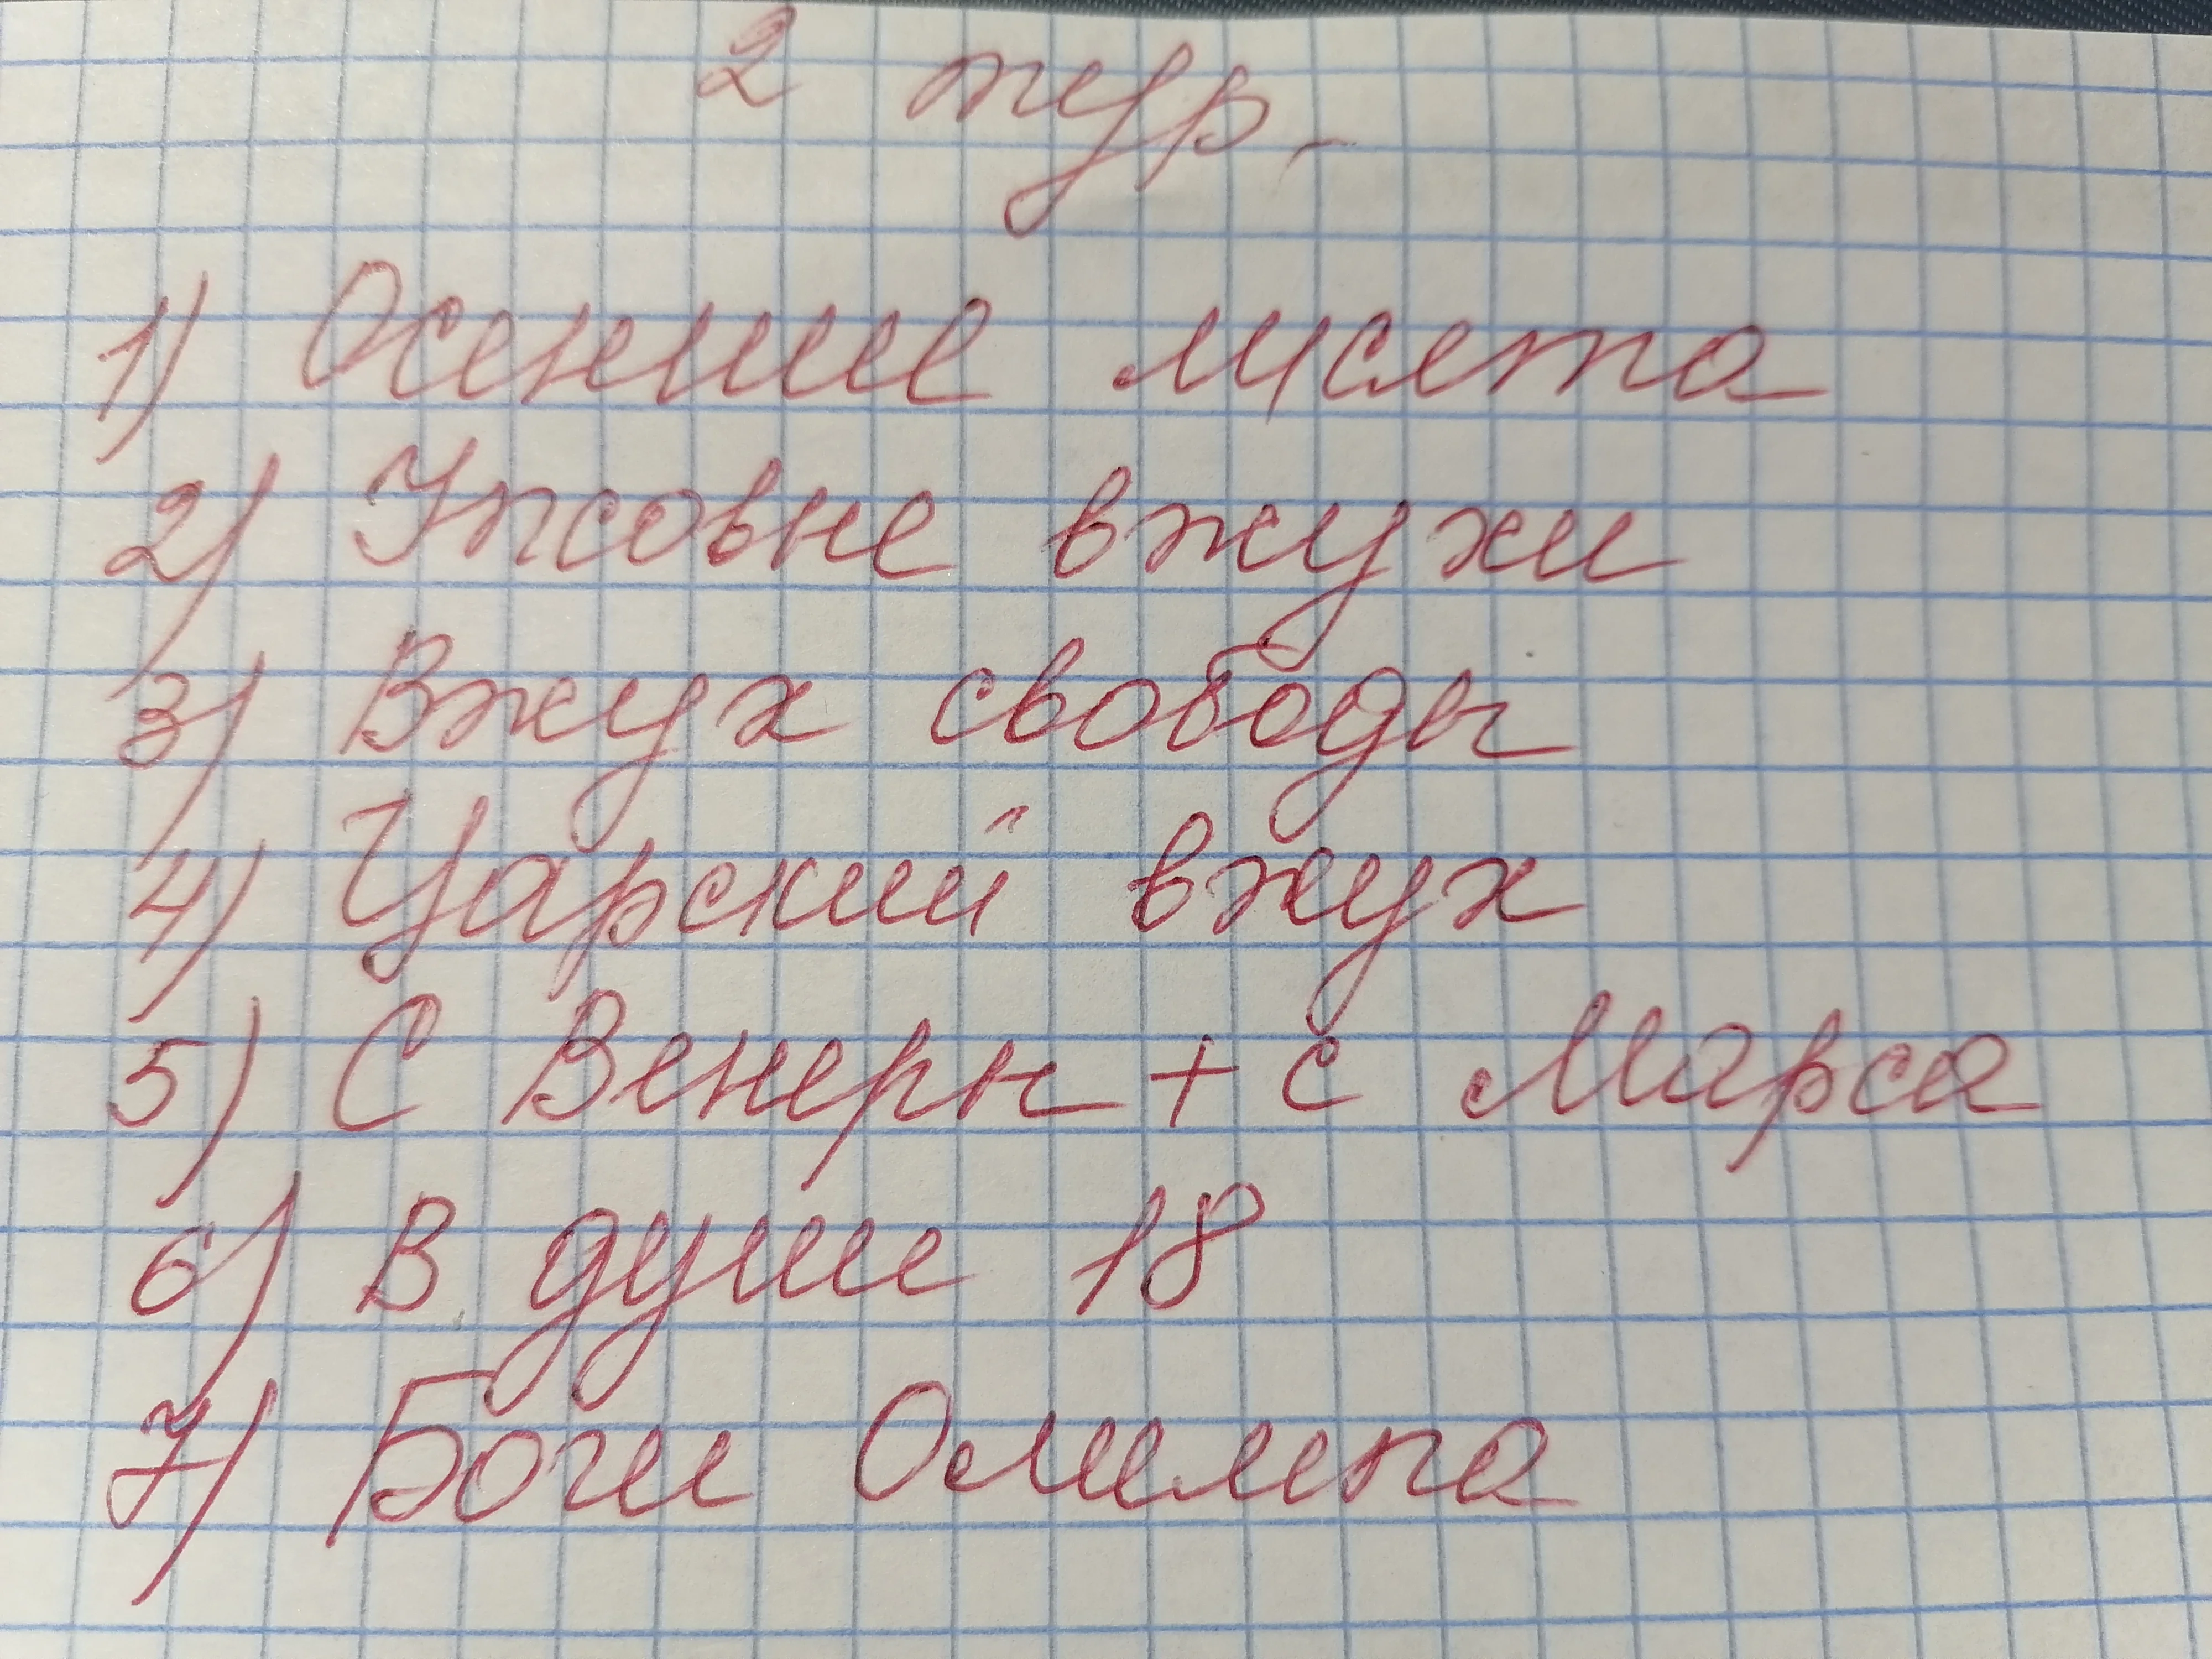 2 тур.
1) Осенние лисята
2) вжухи
3) Вжух свободы
4) Царский вжух
5) С Венеры + с Марса
6) В душе 18
7) Боги Олимпа